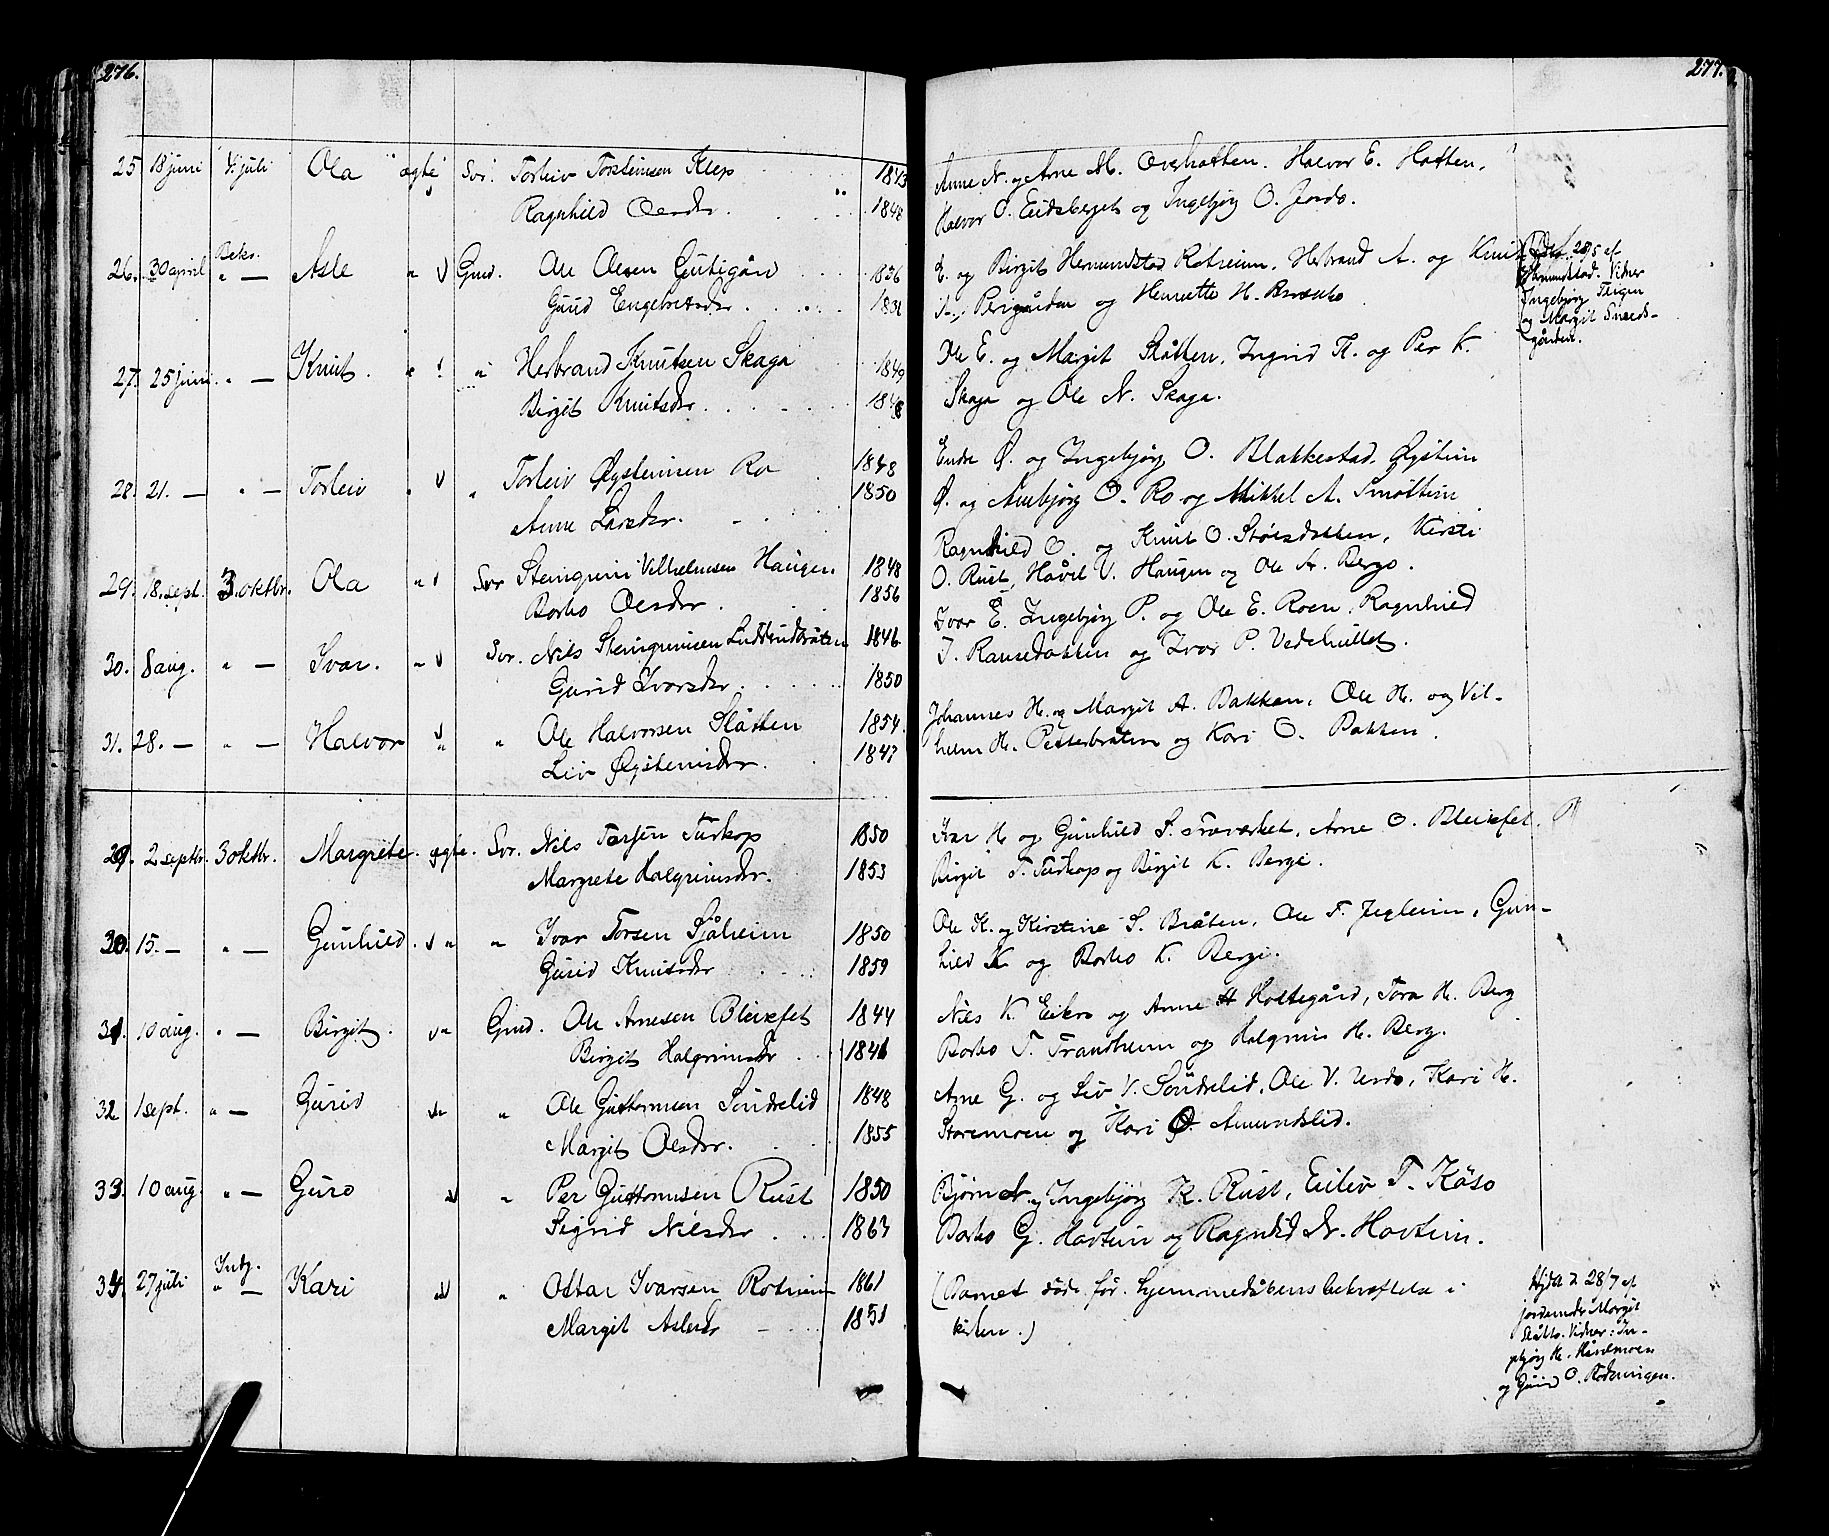 276.
25 18 juni 4. juli Ola ægte Svr. Torleiv Torsteinsen Klep 1843
Ragnhild Olesdr. 1848
26. 30 april Bekr. " — Asle " Gmd. Ole Olesen Gutigård 1836
Gurid Engebretsdr. 1831
27. 25 juni " — Knut. " " Herbrand Knutsen Skaga 1849
Birgit Knutsdr. 1848
28. 21. — " — Torleiv " " Torleiv Øysteinsen Ro 1848
Anne Larsdr. 1850
29. 18. sept. 3. oktbr. Ola " Svr Steingrim Vilhelmsen Haugen 1848
Barbo Olesdr. 1856
30. 8 aug. " — Ivar. " Svr. Nils Steingrimsen 1846
Gurid Ivarsdr. 1850
31. 28. — " — Halvor " " Ole Halvorsen Slåtten 1854
Liv Øysteinsdr. 1847
29. 2 septbr. 3 oktbr. Margrete. ægte. Svr. Nils Tarjen Turkop 1850
Margrete Halgrimsdr. 1853
30. 15. — " — Gunhild. " " Ivar Torsen Sjåheim 1850
Gurid Knutsdr 1859
31. 10 aug. " — Birgit. " Gmd. Ole Arnesen Bleixfet 1844
Birgit Halgrimsdr 1846
32 1 sept. " — Gurid " Ole Guttormsen Sundrelid 1848
Margit Olesdr. 1855
33. 10 aug. " — Guro " Per Guttormsen Rust 1850
Sigrid Nilsdr 1863
34. 27 juli " — Kari " Ottar Ivarsen Rotneim 1861
Margit Aslesdr 1851
277.
Anne N. og Arne M. Overhatten. Halvor E. Hatten,
Halvor O. Eidsberget og Ingebjørg O. Jordo.
E. og Birgit Hemundstad Rotneim, Herbrand A. og Knut
Perigården og Henriette H.
Født 28/5 af
Hemundstad. Vidner
Ingebjørg Teigen
og Margit
gården.
Ole E. og Margit Slåtten, Ingrid H. og Per K.
Skaga og Ole N. Skaga.
Endre Ø. og Ingebjørg O. Blakkestad, Øystein
Ø. og Anebjørg O. Ro og Mikkel A.
Ragnhild O. og Knut O. Kirsti
O. Rust, Håvel V. Haugen og Ole A. Bergo.
Ivar E. Ingebjørg P. og Ole E. Roen, Ragnhild
I. og Ivar P. Vedehullet.
Johannes H. og Margit A. Bakken, Ole H. og Vil-
helm H. Petterbråten og Kari O. Bakken.
Ivar H og Gunhild T. Arne O. Bleixfet.
Birgit T. Turkop og Birgit K. Berge.
Ole K. og Kirstine S. Bråten, Ole T. Jegleim, Gun-
hild K og Barbo K. Berge.
Nils K. Eikro og Anne H Holtegård, Tora H. Berg
Barbo T. Trandheim og Halgrim H. Berg.
Arne G. og Liv V. Sundrelid, Ole V. Urdo, Kari H.
Storemoen og Kari O. Amundslid.
Bjørn N. og Ingebjørg K. Rust, Eiliv T. Kåso
Barbo G. Hovtun og Ragnhild N. Hovtun.
(Barnet døde før hjemmedåbens bekræftelse i
kirken.)
28/7 af
jordemdr Margit
Slåtto. Vidner: In-
gebjørg H.
og Gurid O.